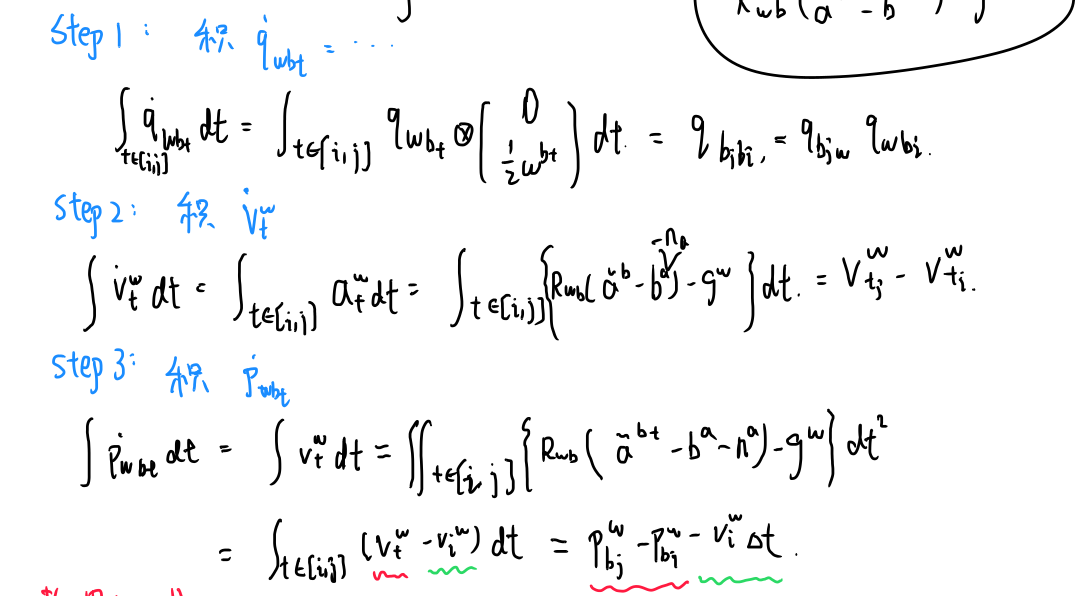 R_{wb}(a - b ) g
Step 1: 积 \dot{q}_{wbt} = ...
∫_{t∈[i,j]} \dot{q}_{wbt} dt = ∫_{t∈[i,j]} q_{wbt} ⊗ [0 \frac{1}{2}ω^{bt}] dt. = q_{bjbi}, = q_{bjw} q_{wbi}.
Step 2: 积 \dot{V}_t^w
∫ \dot{v}_t^w dt = ∫_{t∈[i,j]} a_t^w dt = ∫_{t∈[i,j]} {R_{wb}(\tilde{a}^b - b^a -n_a) - g^w} dt. = V_{tj}^w - V_{ti}^w.
Step 3: 积 \dot{p}_{wbt}
∫ \dot{p}_{wbt} dt = ∫ v_t^w dt = ∬_{t∈[i,j]} {R_{wb}(\tilde{a}^{bt} - b^a - n^a) - g^w} dt^2
= ∫_{t∈[i,j]} (v_t^w - v_i^w) dt = p_{bj}^w - p_{bi}^w - v_i^w Δt.